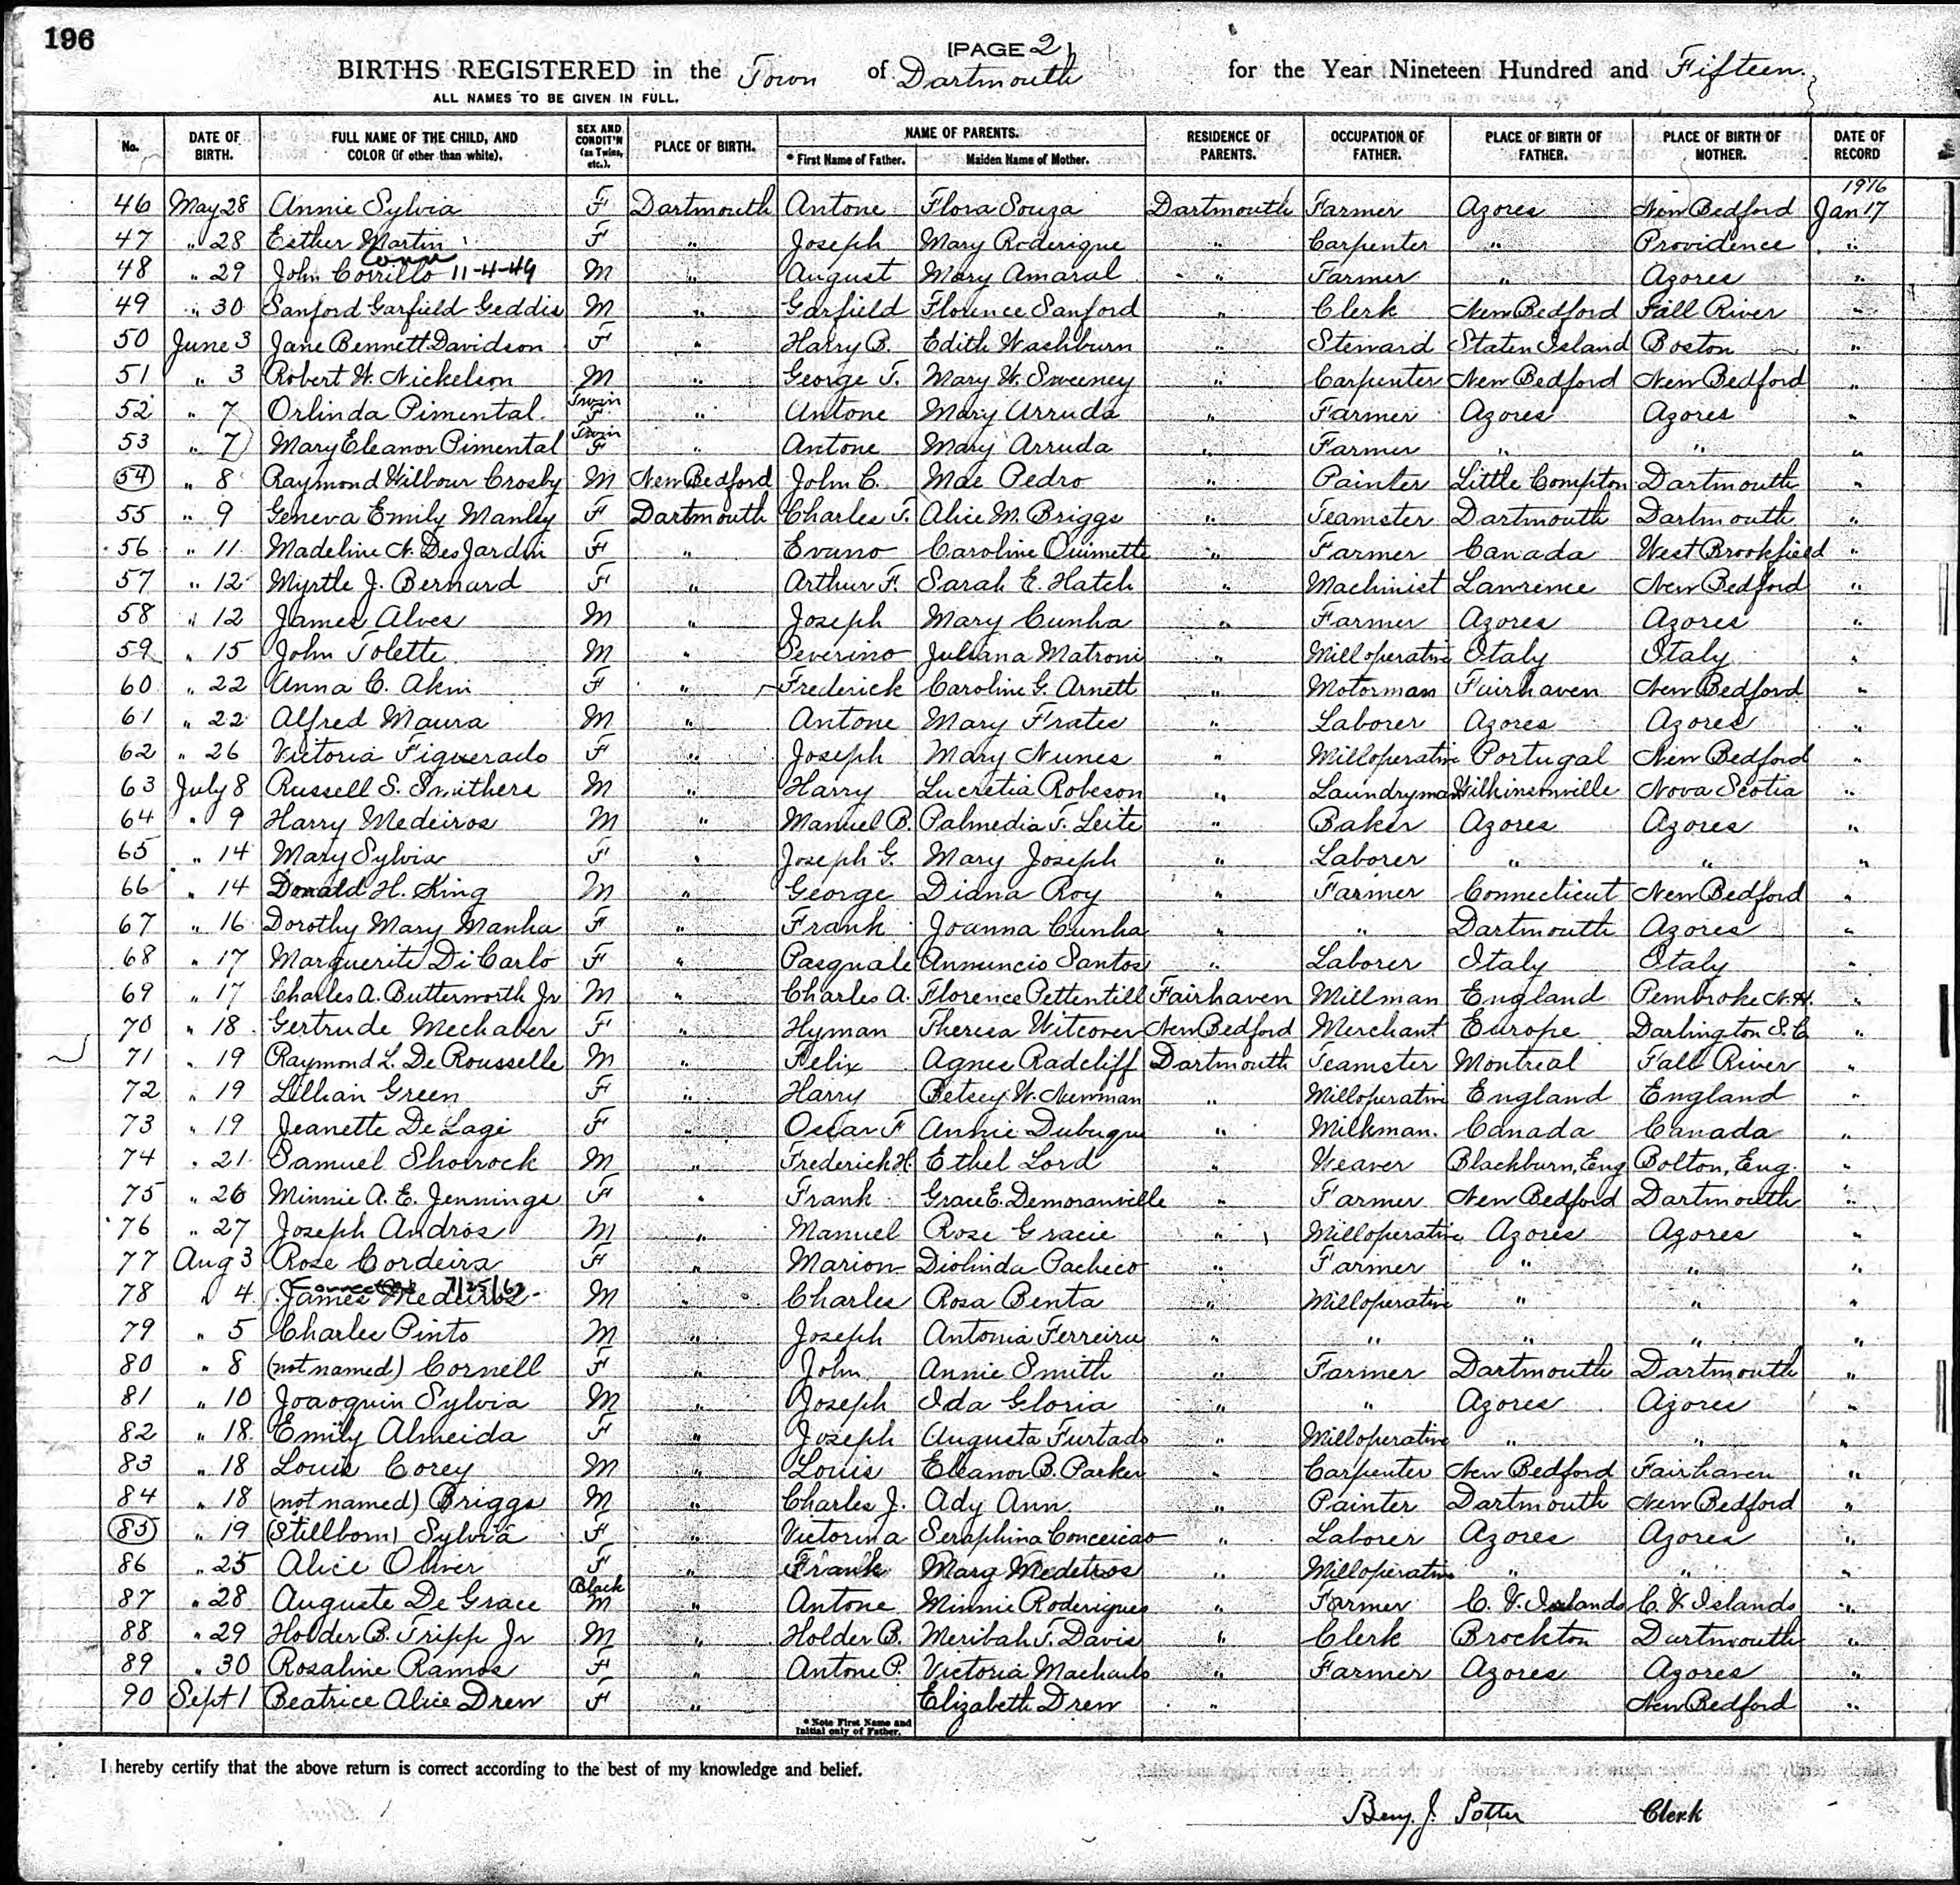 196
[PAGE 2]
BIRTHS REGISTERED in the Town of Dartmouth for the Year Nineteen Hundred and Fifteen.
ALL NAMES TO BE GIVEN IN FULL.
No. DATE OF BIRTH. FULL NAME OF THE CHILD, AND COLOR (if other than white). SEX AND CONDIT'N (as Twins, etc.). PLACE OF BIRTH. NAME OF PARENTS. * First Name of Father. Maiden Name of Mother. RESIDENCE OF PARENTS. OCCUPATION OF FATHER. PLACE OF BIRTH OF FATHER. PLACE OF BIRTH OF MOTHER. DATE OF RECORD
1916
46 May 28 Annie Sylvia F Dartmouth Antone Flora Souza Dartmouth Farmer Azores New Bedford Jan 17
47 " 28 Esther Martin F " Joseph Mary Roderique " Carpenter " Providence "
48 " 29 John Corrillo 11-4-49 M " August Mary Amaral " Farmer " Azores "
49 " 30 Sanford Garfield Geddis M " Garfield Florence Sanford " Clerk New Bedford Fall River "
50 June 3 Jane Bennett Davidson F " Harry B. Edith Washburn " Steward Staten Island Boston "
51 " 3 Robert W. Nickelson M " George T. Mary W. Sweeney " Carpenter New Bedford New Bedford "
52 " 7 Orlinda Pimental Twin F " Antone Mary Arruda " Farmer Azores Azores "
53 " 7 Mary Eleanor Pimental Twin F " Antone Mary Arruda " Farmer " " "
54 " 8 Raymond Wilbour Crosby M New Bedford John C. Mae Pedro " Painter Little Compton Dartmouth "
55 " 9 Geneva Emily Manley F Dartmouth Charles T. Alice M. Briggs " Teamster Dartmouth Dartmouth "
56 " 11 Madeline N. DesJardin F " Evano Caroline Ouimette " Farmer Canada West Brookfield "
57 " 12 Myrtle J. Bernard F " Arthur F. Sarah E. Hatch " Machinist Lawrence New Bedford "
58 " 12 James Alves M " Joseph Mary Cunha " Farmer Azores Azores "
59 " 15 John Tolette M " Severino Juliana Matroni " Milloperative Italy Italy "
60 " 22 Anna C. Akin F " Frederick Caroline G. Arnett " Motorman Fairhaven New Bedford "
61 " 22 Alfred Maura M " Antone Mary Frates " Laborer Azores Azores "
62 " 26 Victoria Figuerado F " Joseph Mary Nunes " Milloperative Portugal New Bedford "
63 July 8 Russell S. Smithers M " Harry Lucretia Robeson " Laundryman Wilkinsonville Nova Scotia "
64 " 9 Harry Medeiros M " Manuel B. Palmedia T. Leite " Baker Azores Azores "
65 " 14 Mary Sylvia F " Joseph G. Mary Joseph " Laborer " " "
66 " 14 Donald H. King M " George Diana Roy " Farmer Connecticut New Bedford "
67 " 16 Dorothy Mary Manha F " Frank Joanna Cunha " " Dartmouth Azores "
68 " 17 Marguerite DiCarlo F " Pasquale Annuncio Santos " Laborer Italy Italy "
69 " 17 Charles A. Butterworth Jr M " Charles A. Florence Pettentill Fairhaven Millman England Pembroke N.H. "
70 " 18 Gertrude Mechaber F " Hyman Theresa Witcover New Bedford Merchant Europe Darlington S.C. "
71 " 19 Raymond L. De Rousselle M " Felix Agnes Radcliff Dartmouth Teamster Montreal Fall River "
72 " 19 Lillian Green F " Harry Betsey W. Newman " Milloperative England England "
73 " 19 Jeanette De Lage F " Oscar F Annie Dubuque " Milkman. Canada Canada "
74 " 21 Samuel Shorrock M " Frederick H. Ethel Lord " Weaver Blackburn, Eng Bolton, Eng. "
75 " 26 Minnie A. E. Jennings F " Frank Grace E. Demoranville " Farmer New Bedford Dartmouth "
76 " 27 Joseph Andros M " Manuel Rose Gracie " Milloperative Azores Azores "
77 Aug 3 Rose Cordeira F " Marion Diolinda Pacheco " Farmer " " "
78 " 4 Corrected 7/25/62 James Medeiros M " Charles Rosa Benta " Milloperative " " "
79 " 5 Charles Pinto M " Joseph Antonia Ferreira " " " " "
80 " 8 (not named) Cornell F " John Annie Smith " Farmer Dartmouth Dartmouth "
81 " 10 Joaoquin Sylvia M " Joseph Ida Gloria " " Azores Azores "
82 " 18 Emily Almeida F " Joseph Augusta Furtado " Milloperative " " "
83 " 18 Louis Corey M " Louis Eleanor B. Parker " Carpenter New Bedford Fairhaven "
84 " 18 (not named) Briggs M " Charles J. Ady Ann " Painter Dartmouth New Bedford "
85 " 19 (Stillborn) Sylvia F " Victorina Seraphina Conceicao " Laborer Azores Azores "
86 " 25 Alice Oliver F " Frank Mary Medeiros " Milloperative " " "
87 " 28 Auguste De Grace Black M " Antone Minnie Roderigues " Farmer C. V. Islands C. V. Islands "
88 " 29 Holder B. Tripp Jr M " Holder B. Meribah T. Davis " Clerk Brockton Dartmouth "
89 " 30 Rosaline Ramos F " Antone P. Victoria Machado " Farmer Azores Azores "
90 Sept 1 Beatrice Alice Drew F " Elizabeth Drew " New Bedford "
* Note First Name and Initial only of Father.
I hereby certify that the above return is correct according to the best of my knowledge and belief.
Benj. J. Potter Clerk